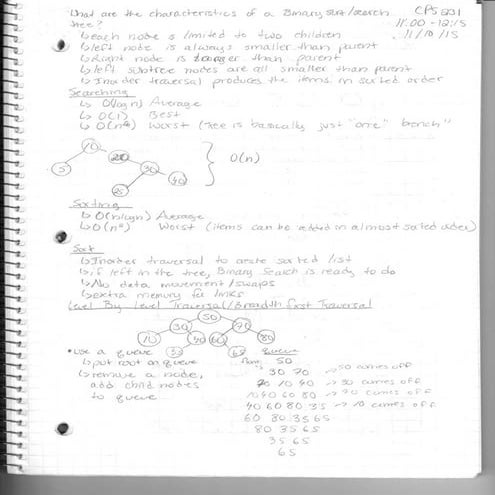 What are the characteristics of a Binary sort/search
tree?
CPS 231
11:00 - 12:15
11/10/15
↳ each node is limited to two children
↳ left node is always smaller than parent
↳ Right node is larger than parent
↳ left subtree nodes are all smaller than parent
↳ Inorder traversal produces the items in sorted order
Searching
↳ O(logn) Average
↳ O(1) Best
↳ O(n) Worst (Tree is basically just "one" branch"
10
5
20
30
25
40
O(n)
Sorting
↳ O(nlogn) Average
↳ O(n²) Worst (items can be added in almost sorted order)
Sort
↳ Inorder traversal to create sorted list
↳ if left in the tree, Binary Search is ready to do
↳ No data movement/swaps
↳ extra memory for links
Level By Level Traversal/Breadth first Traversal
50
30 70
10 40 60 80
35 65
• use a queue
↳ put root on queue
↳ remove a node,
add child nodes
to queue
queue
50
30 70 → 50 comes off
70 10 40 → 30 comes off
10 40 60 80 → 70 comes off
40 60 80 35 → 10 comes off
60 80 35 65
80 35 65
35 65
65